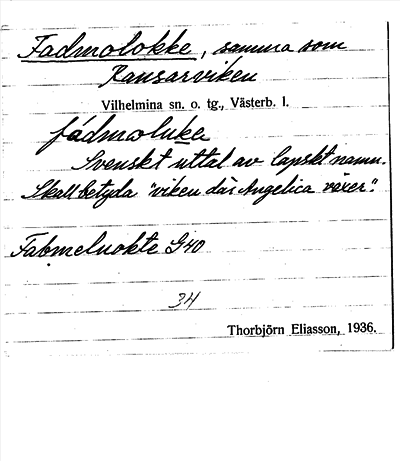 Fadmolokke, samma som
Ransarviken
Vilhelmina sn. o. tg., Västerb. l.
fádmoluke
Svenskt uttal av lapskt namn.
Skall betyda "viken där Angelica växer".
Fabmeluokte G40
34
Thorbjörn Eliasson, 1936.